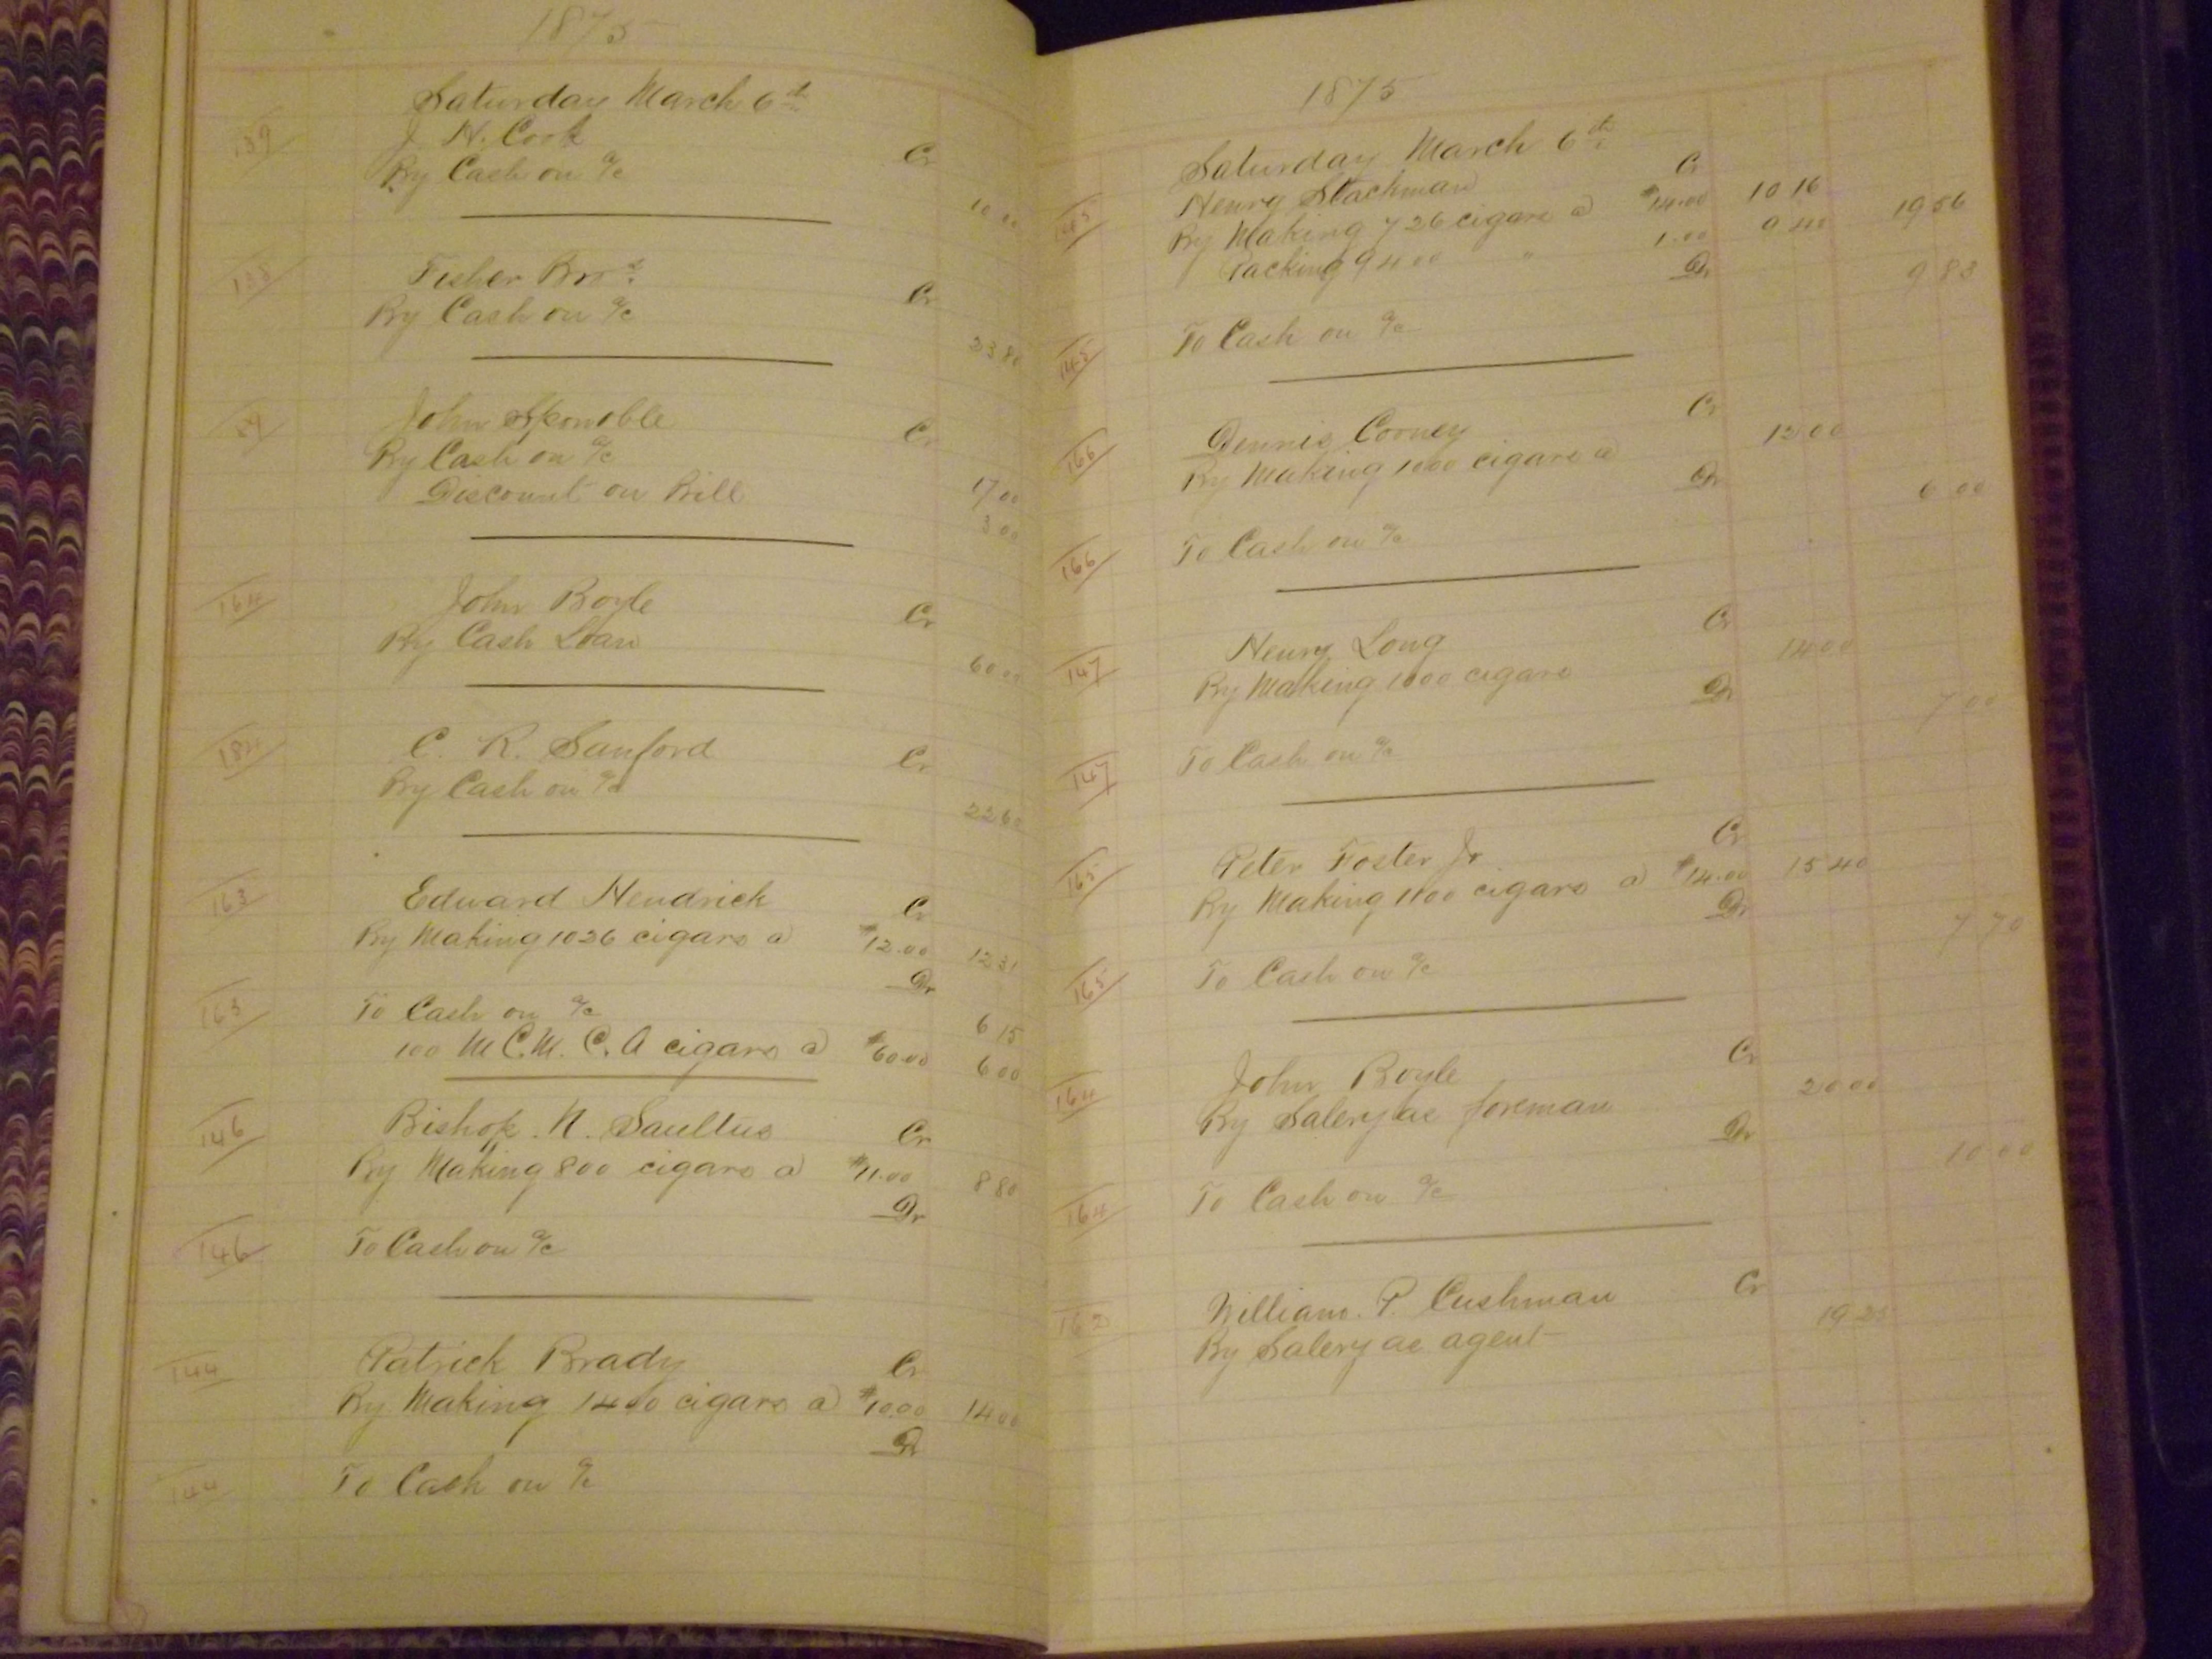 1875
Saturday March 6th
139 J. H. Cook Cr
By Cash on a/c 10 00
Fisher Bros. Cr
By Cash on a/c 23 80
John Sponoble Cr
By Cash on a/c 17 00
Discount on Bill 3 00
164 John Boyle Cr
By Cash Loan 60 00
184 C. R. Sanford Cr
By Cash on a/c 22 60
163 Edward Hendrick Cr
By Making 1026 cigars a $12.00 12 31
Dr
163 To Cash on a/c 6 15
100 M C. M. C. A cigars a $60.00 6 00
146 Bishop N. Saultus Cr
By Making 800 cigars a $11.00 8 80
Dr
146 To Cash on a/c
144 Patrick Brady Cr
By Making 1400 cigars a $10.00 14 00
Dr
144 To Cash on a/c
1875
Saturday March 6th
145 Henry Stachman Cr
By Making 726 cigars a $14.00 10 16
Packing 9400 " 1.00 9 40 19 56
Dr
145 To Cash on a/c 9 83
166 Dennis Cooney Cr
By Making 1000 cigars a 12 00
Dr
166 To Cash on a/c 6 00
147 Henry Long Cr
By Making 1000 cigars 14 00
Dr
147 To Cash on a/c 7 00
165 Peter Foster Jr Cr
By Making 1100 cigars a $14.00 15 40
Dr
165 To Cash on a/c 7 70
164 John Boyle Cr
By Salery as foreman 20 00
Dr
164 To Cash on a/c 10 00
162 William. P. Cushman Cr
By Salery as agent 19 25